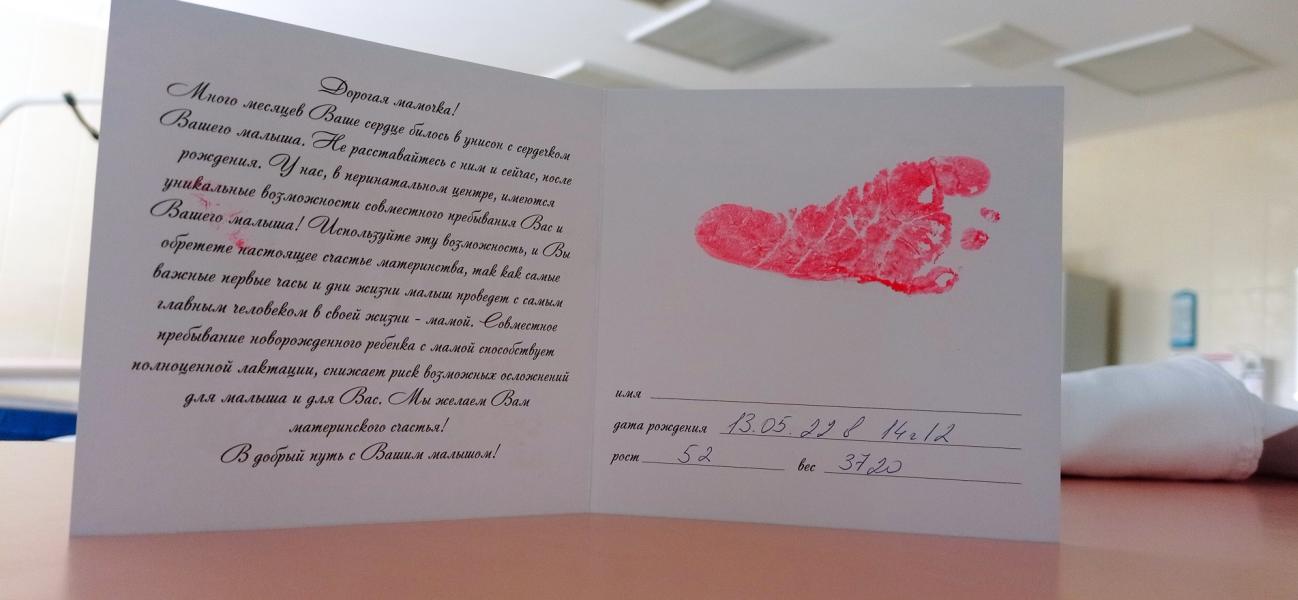 Дорогая мамочка!
Много месяцев Ваше сердце билось в унисон с сердечком
Вашего малыша. Не расставайтесь с ним и сейчас, после
рождения. У нас, в перинатальном центре, имеются
уникальные возможности совместного пребывания Вас и
Вашего малыша! Используйте эту возможность, и Вы
обретете настоящее счастье материнства, так как самые
важные первые часы и дни жизни малыш проведет с самым
главным человеком в своей жизни - мамой. Совместное
пребывание новорожденного ребенка с мамой способствует
полноценной лактации, снижает риск возможных осложнений
для малыша и для Вас. Мы желаем Вам
материнского счастья!
В добрый путь с Вашим малышом!
имя
дата рождения 13.05.22 в 14ч12
рост 52 вес 3720